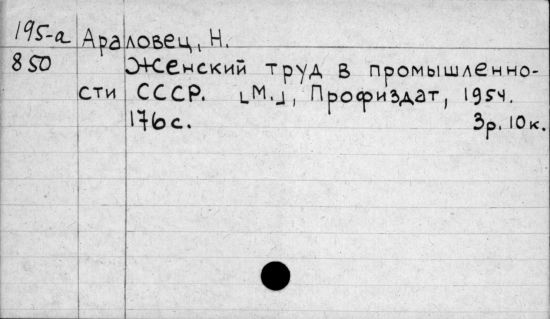 195-а Араловец, Н.
850 Женский труд в промышленно-
сти СССР. [М.], Профиздат, 1954.
176 с. 3р. 10к.